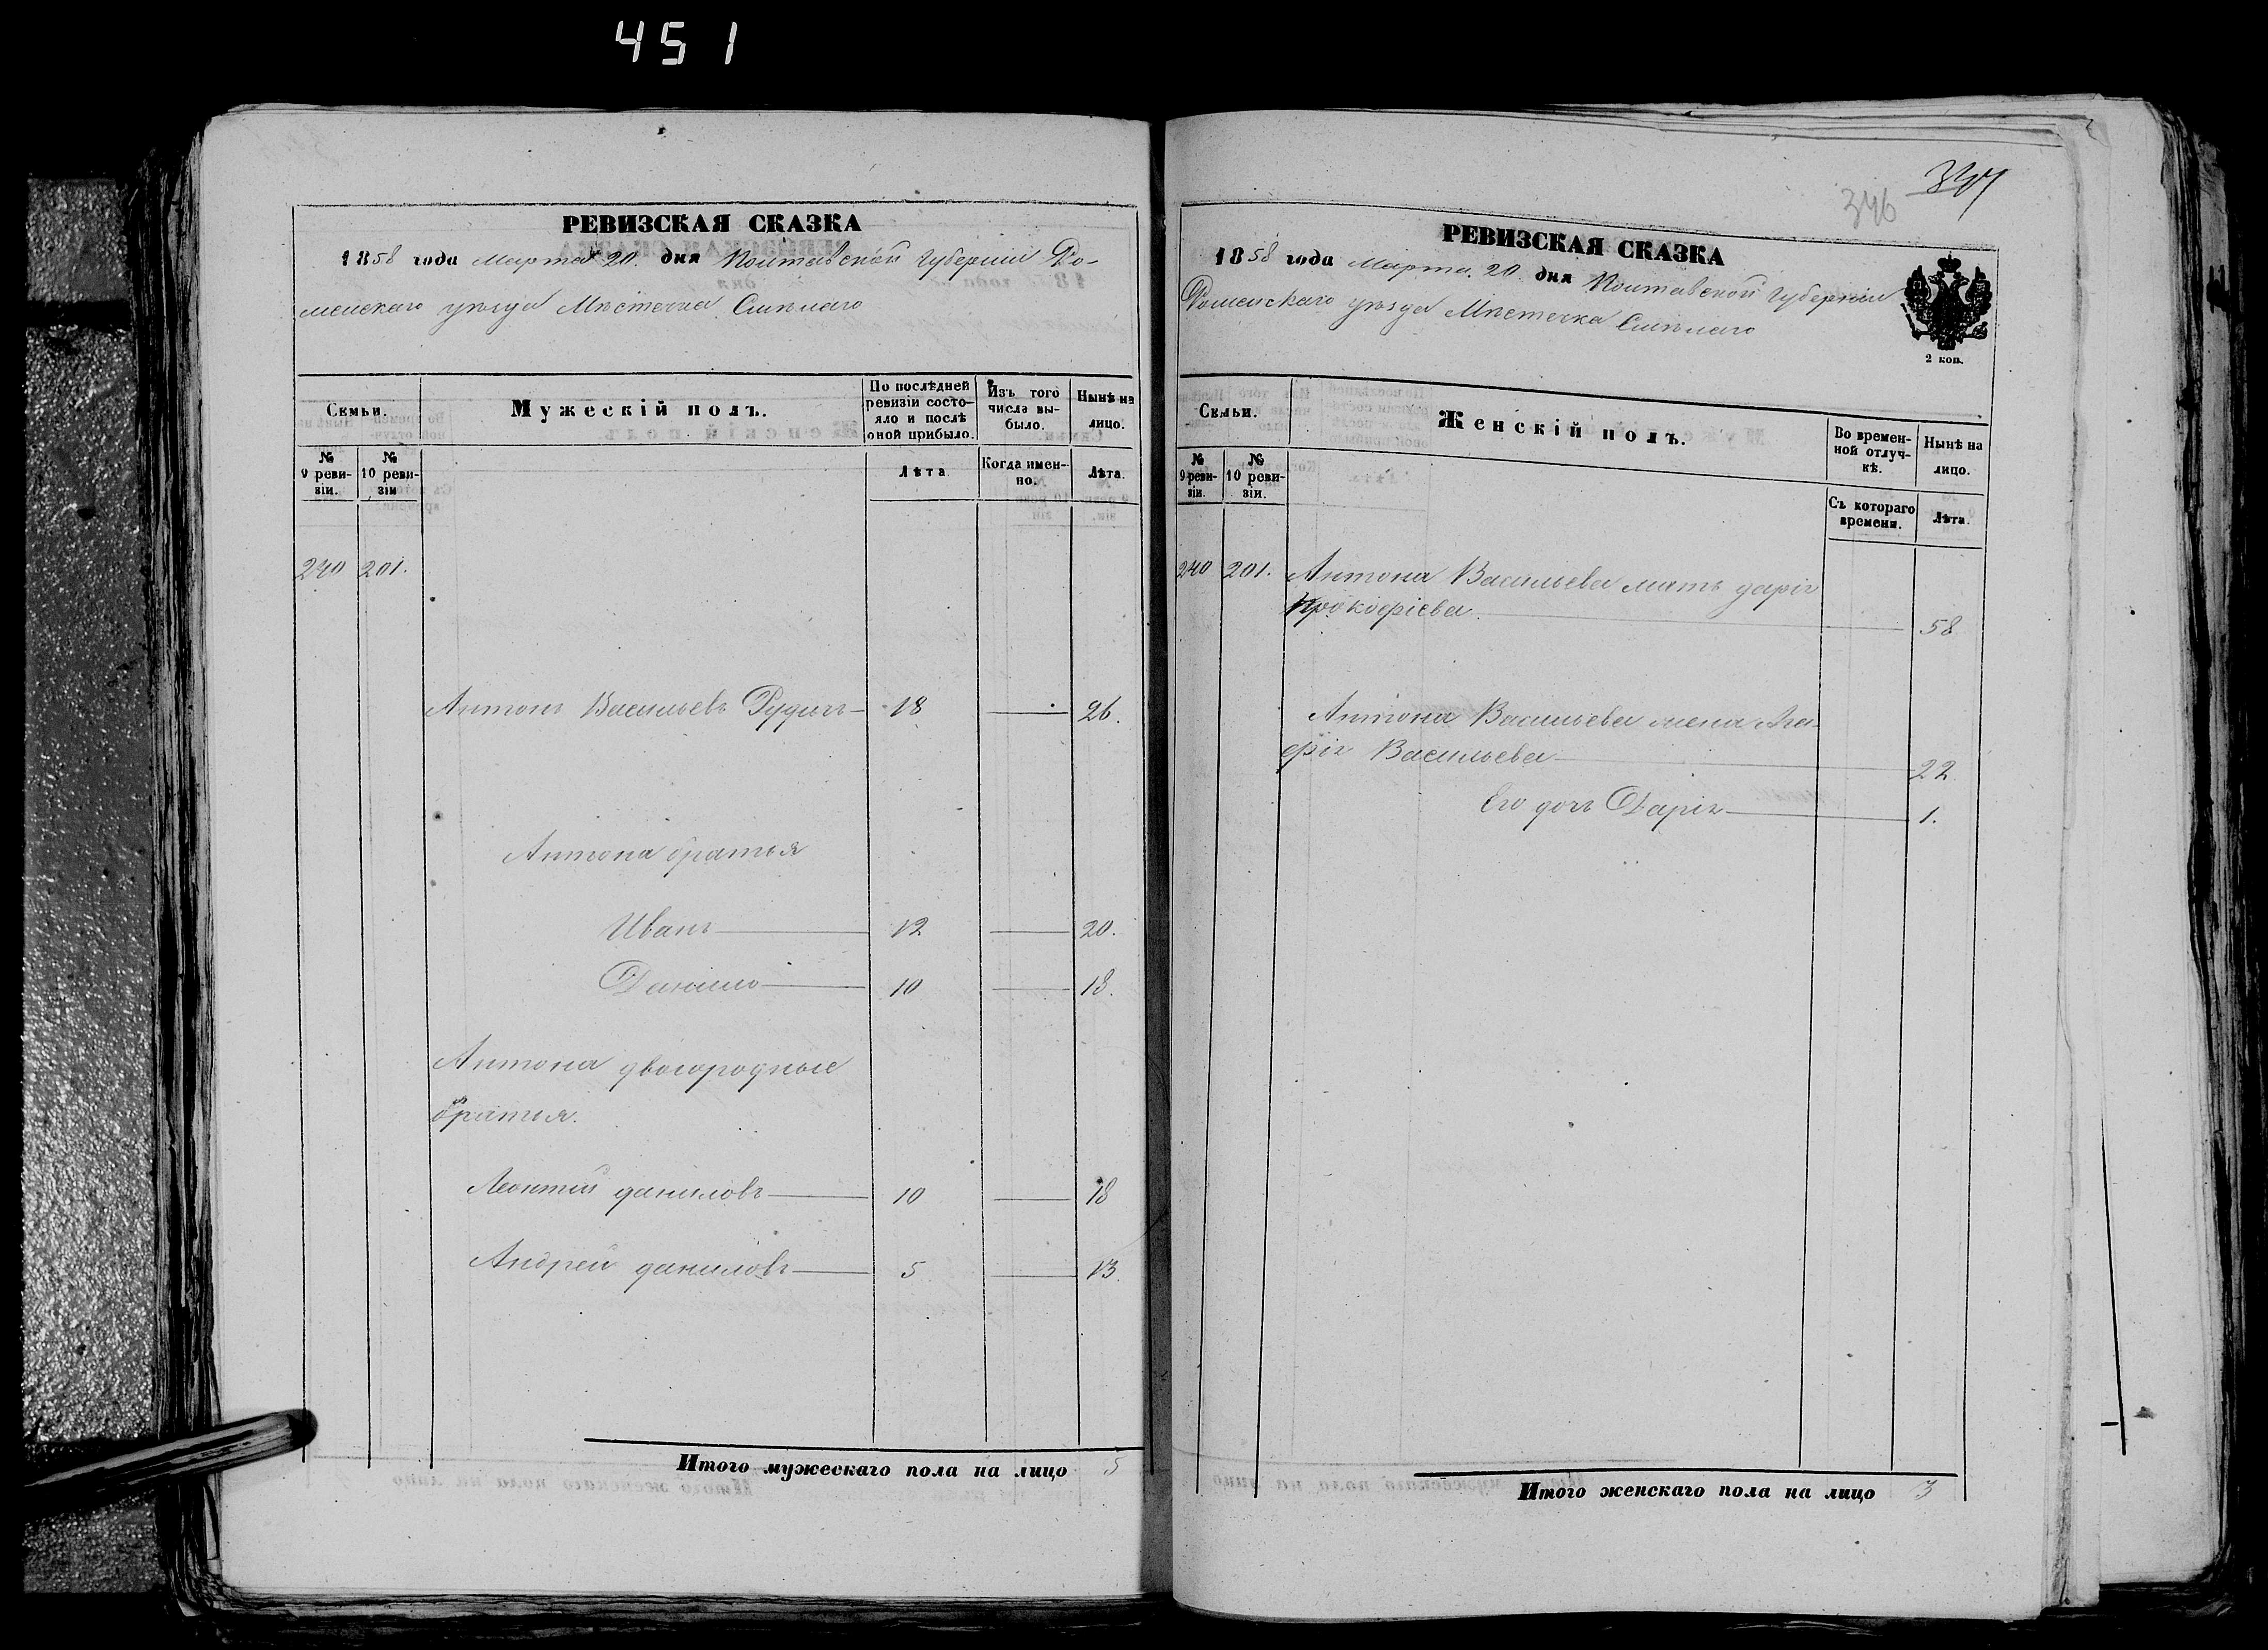 451
РЕВИЗСКАЯ СКАЗКА
1858 года Марта 20. дня Полтавской Губерніи Ро-
менскаго уѣзда Мѣстечка Смѣлаго
Семьи.
Мужескій полъ.
По послѣдней ревизіи состо-
яло и послѣ оной прибыло.
Изъ того числа вы-
было.
Нынѣ на лицо.
№ 9 реви-
зіи.
№ 10 реви-
зіи
Лѣта
Когда имен-
но.
Лѣта.
240 201.
Антонъ Васильевъ Рудичъ 18 26.
Антона братья
Иванъ 12 20.
Данило 10 18.
Антона двоюродные
братья.
Леонтій даниловъ 10 18
Андрей даниловъ 5 13.
Итого мужескаго пола на лицо 5
346
РЕВИЗСКАЯ СКАЗКА
1858 года Марта 20 дня Полтавской Губерніи
Роменскаго уѣзда Мѣстечка Смѣлаго
2 коп.
Семьи.
Женскій полъ.
Во времен-
ной отлуч-
кѣ.
Нынѣ на лицо.
№ 9 реви-
зіи.
№ 10 реви-
зіи.
Съ котораго времени.
Лѣта.
240 201. Антона Васильева мать дарія
Прокофіева. 58
Антона Васильева жена Ага-
фія Васильева 22
Его дочь Дарія 1.
Итого женскаго пола на лицо 3